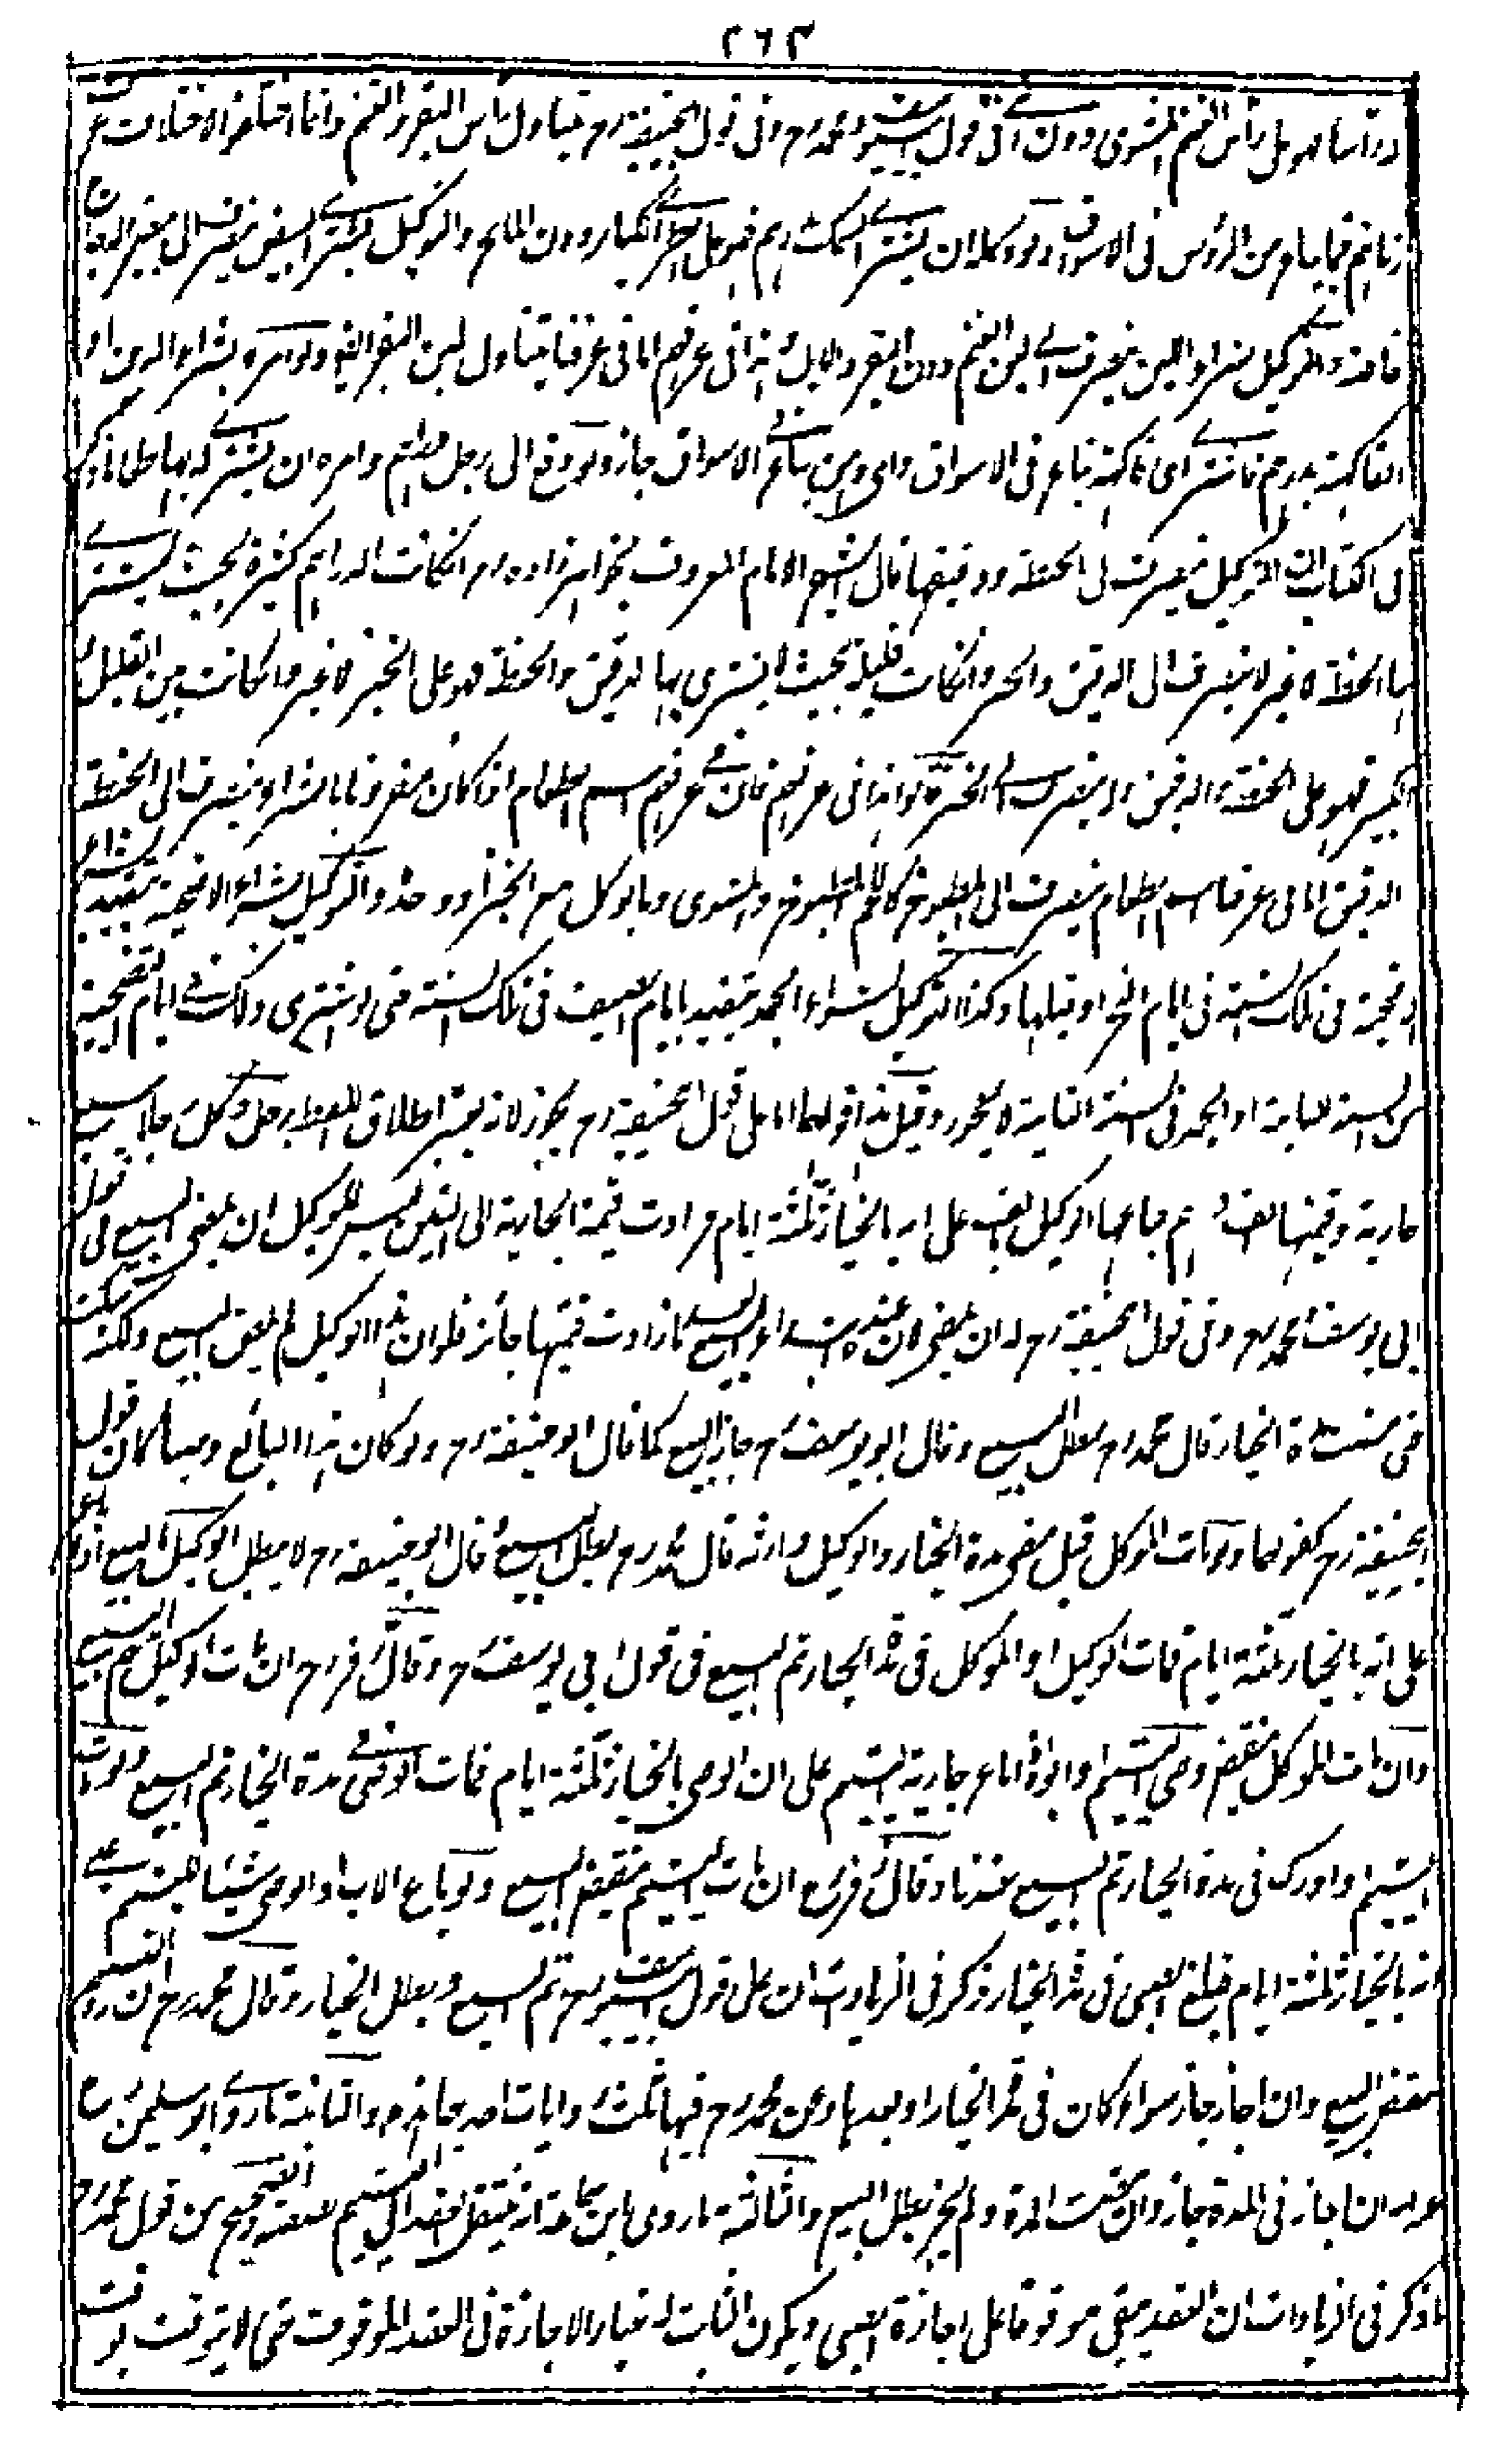 ٢٦٣
رأس الغنم المشوي دون الني في قول ابي يوسف ومحمد رح وفي قول ابي حنيفة رح يتناول رأس البقر والغنم وانما اختلفوا لاختلاف
فيما يباع من الرؤس في الاسواق ولو وكله ان يشتري السمك بدرهم فهو على الطري الكبار دون المالح والتوكيل بشراء البيض ينصرف الى بيض الدجاج
والتوكيل بشراء اللبن ينصرف الى لبن الغنم دون البقر والابل هذا في عرفهم اما في عرفنا يتناول لبن البقر ولو امره بشراء الدهن او
الفاكهة بدرهم فاشترى اي فاكهة تباع في الاسواق واي دهن يباع في الاسواق جاز ولو دفع الى رجل دراهم وامره ان يشتري له بها طعاما ذكر
في الكتاب ان التوكيل ينصرف الى الحنطة ودقيقها قال الشيخ الامام المعروف بخواهرزاده رح ان كانت الدراهم كثيرة بحيث يشتري
بها الحنطة لا ينصرف الى الدقيق والخبز وان كانت قليلة بحيث لا يشترى بها الدقيق والحنطة فهو على الخبز لا غير وان كانت بين القليل و
الكثير فهو على الحنطة والدقيق ولا ينصرف الى الخبز قالوا هذا في عرفهم فان في عرفهم اسم الطعام اذا كان مقرونا بالشراء ينصرف الى الحنطة
الدقيق اما في عرفنا اسم الطعام ينصرف الى المطبوخ كاللحم المطبوخ والمشوي وما يوكل مع الخبز او وحده والتوكيل بشراء الاضحية يتقيد بشراء
الاضحية في تلك السنة في ايام النحر او قبلها وكذا التوكيل بشراء الجمد يتقيد بايام الصيف في تلك السنة حتى لو اشترى ذلك في ايام التضحية
من السنة الثانية او الجمد في السنة الثانية لا يجوز وقيل هذا قولهما اما على قول ابي حنيفة رح يجوز لانه يعتبر اطلاق اللفظ رجل وكل رجلا ببيع
جارية وقيمتها الف درهم فباعها الوكيل بالف على انه بالخيار ثلثة ايام فزادت قيمة الجارية الى الفين ليس للوكيل ان يمضي البيع في قول
ابي يوسف ومحمد رح وفي قول ابي حنيفة رح له ان يمضي لان عنده ابتداء البيع بعد ما زادت قيمتها جائز فلو ان هذا الوكيل لم يمض البيع ولكنه سكت
حتى مضت مدة الخيار قال محمد رح بطل البيع وقال ابو يوسف رح جاز البيع كما قال ابو حنيفة رح ولو كان هذا البائع وصيا كان قول
ابي حنيفة رح كقولهما ولو مات الموكل قبل مضي مدة الخيار والوكيل وارثه قال محمد رح بطل البيع وقال ابو حنيفة رح لا يبطل الوكيل بالبيع اذا باع
على انه بالخيار ثلثة ايام فمات الوكيل او الموكل في مدة الخيار تم البيع في قول ابي يوسف رح وقال زفر رح ان مات الوكيل تم البيع
وان مات الموكل ينتقض وصي اليتيم وابوه اذا باع جارية اليتيم على ان الوصي بالخيار ثلثة ايام فمات الوصي في مدة الخيار تم البيع ولو مات
اليتيم او ادرك في مدة الخيار تم البيع عندنا وقال زفر رح ان مات اليتيم ينتقض البيع ولو باع الاب او الوصي شيئا لليتيم على
انه بالخيار ثلثة ايام فبلغ الصبي في مدة الخيار ذكر في الزيادات ان على قول ابي يوسف رح تم البيع وبطل الخيار وقال محمد رح ان رد اليتيم
ينتقض البيع وان اجاز جاز سواء كان في مدة الخيار او بعدها وعن محمد رح فيها ثلث روايات احدها هذه والثانية ما روى ابو سليمن رح
ان اجاز في المدة جاز وان مضت المدة ولم يجز بطل البيع والثالثة ما روى ابن سماعة انه ينتقل العقد الى اليتيم والصحيح من قول محمد رح
ما ذكر في الزيادات ان العقد يبقى موقوفا على اجازة الصبي ويكون الثابت له خيار الاجازة في العقد الموقوف حتى لا يتوقت بوقت